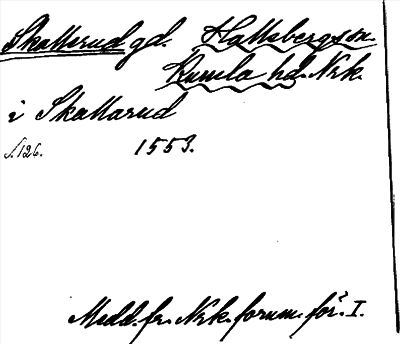 Skallerud gd. Hallsbergs sn.
Kumla hd. Nrk.
i Skallarud
s. 126. 1553.
Medd. fr. Nrk. fornm. för. I.